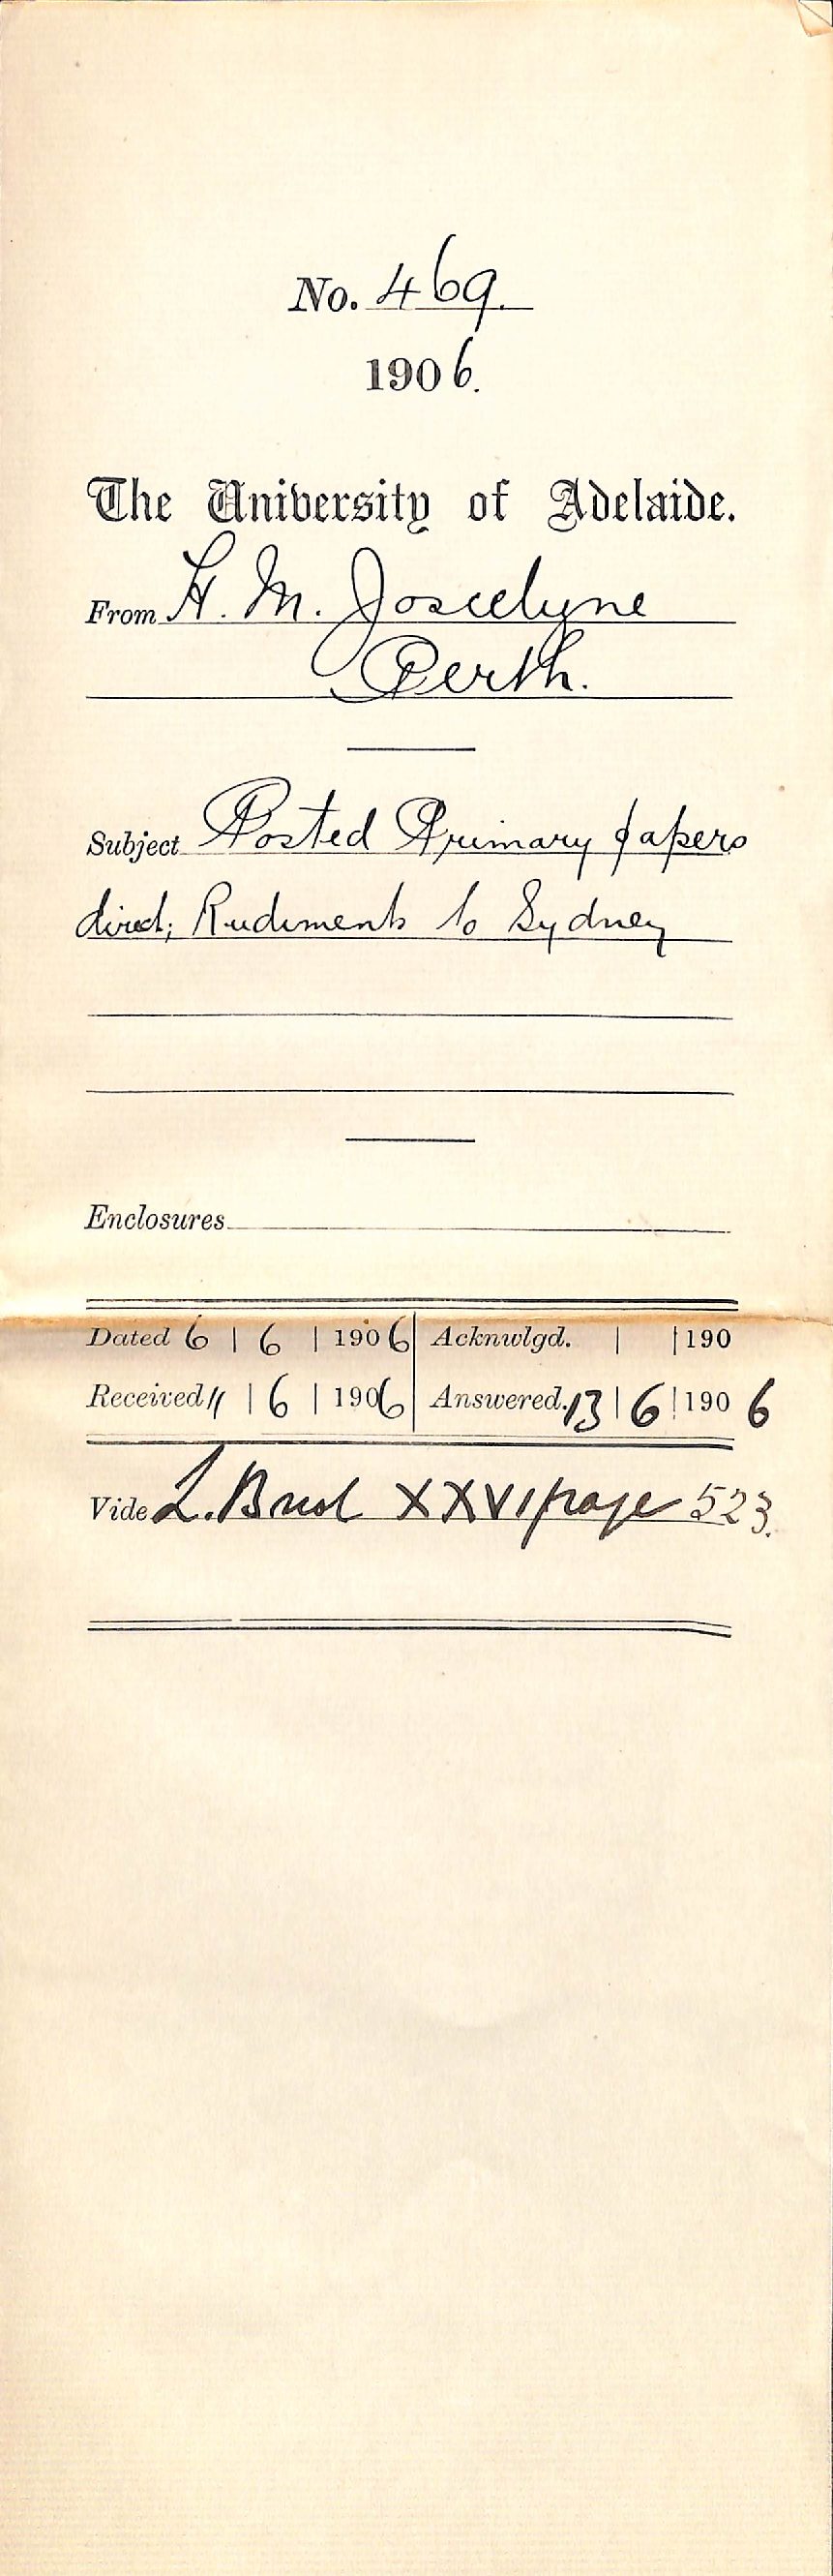 No. 469.
1906.
The University of Adelaide.
From H. M. Joscelyne
Perth.
Subject Posted Primary papers
direct; Rudiments to Sydney
Enclosures
Dated 6 | 6 | 1906 Acknwlgd. | | 190
Received 11 | 6 | 1906 Answered. 13 | 6 | 1906
Vide L. XXVI page 523.